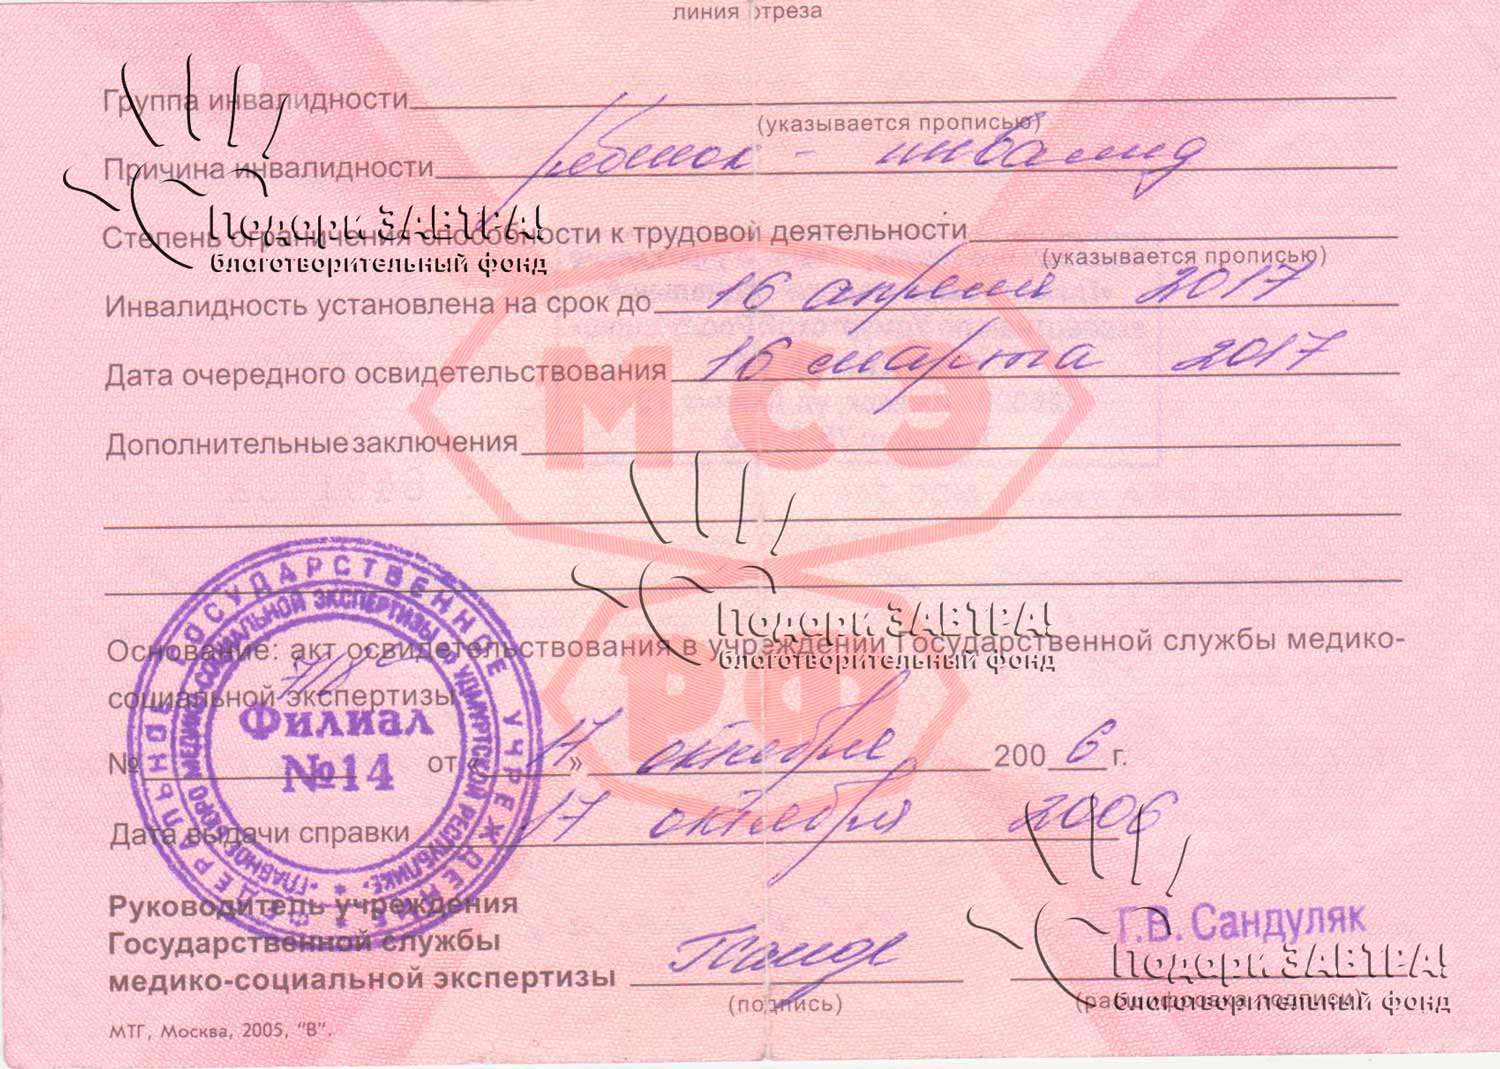 линия отреза
Группа инвалидности
(указывается прописью)
Причина инвалидности ребенок - инвалид
Подари ЗАВТРА!
благотворительный фонд
Степень ограничения способности к трудовой деятельности
(указывается прописью)
Инвалидность установлена на срок до 16 апреля 2017
Дата очередного освидетельствования 16 марта 2017
Дополнительные заключения
МСЭ
РФ
Подари ЗАВТРА!
благотворительный фонд
Основание: акт освидетельствования в учреждении Государственной службы медико-
социальной экспертизы
№ 718 от «17» октября 2006 г.
Дата выдачи справки 17 октября 2006
ФЕДЕРАЛЬНОЕ ГОСУДАРСТВЕННОЕ УЧРЕЖДЕНИЕ
«ГЛАВНОЕ БЮРО МЕДИКО-СОЦИАЛЬНОЙ ЭКСПЕРТИЗЫ ПО УДМУРТСКОЙ РЕСПУБЛИКЕ»
Филиал
№14
Руководитель учреждения
Государственной службы
медико-социальной экспертизы
(подпись)
Г.В. Сандуляк
(расшифровка подписи)
Подари ЗАВТРА!
благотворительный фонд
МТГ, Москва, 2005, "В".